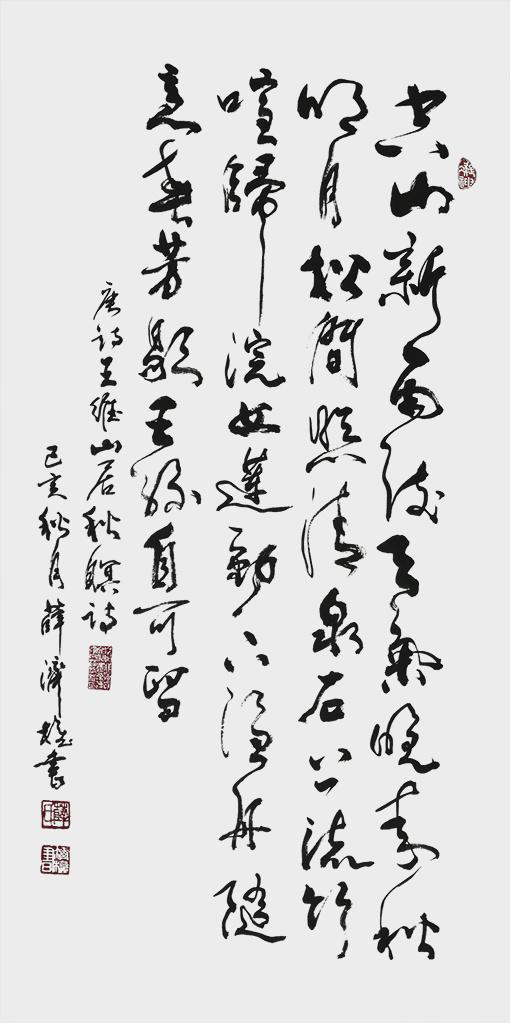 空山新雨後天氣晚來秋
明月松間照清泉石上流竹
喧歸浣女蓮動下漁舟隨
意春芳歇王孫自可留
唐诗王維山居秋暝诗
己亥秋月薛濟書